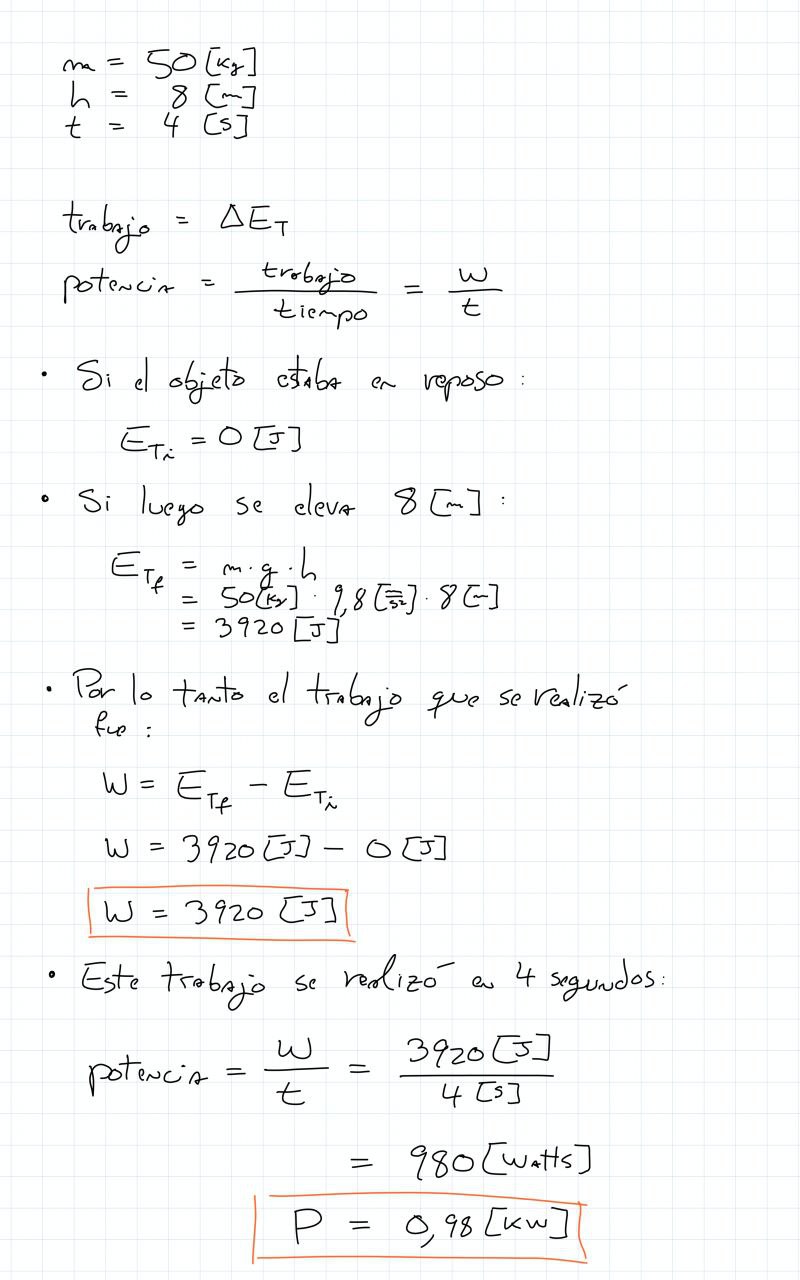 m = 50 [kg]
h = 8 [m]
t = 4 [s]
trabajo = ΔE_T
potencia = trabajo / tiempo = W / t
• Si el objeto estaba en reposo:
E_Ti = 0 [J]
• Si luego se eleva 8 [m]:
E_Tf = m·g·h
= 50 [kg] · 9,8 [m/s²] · 8 [m]
= 3920 [J]
• Por lo tanto el trabajo que se realizó
fue:
W = E_Tf - E_Ti
W = 3920 [J] - 0 [J]
W = 3920 [J]
• Este trabajo se realizó en 4 segundos:
potencia = W / t = 3920 [J] / 4 [s]
= 980 [Watts]
P = 0,98 [KW]